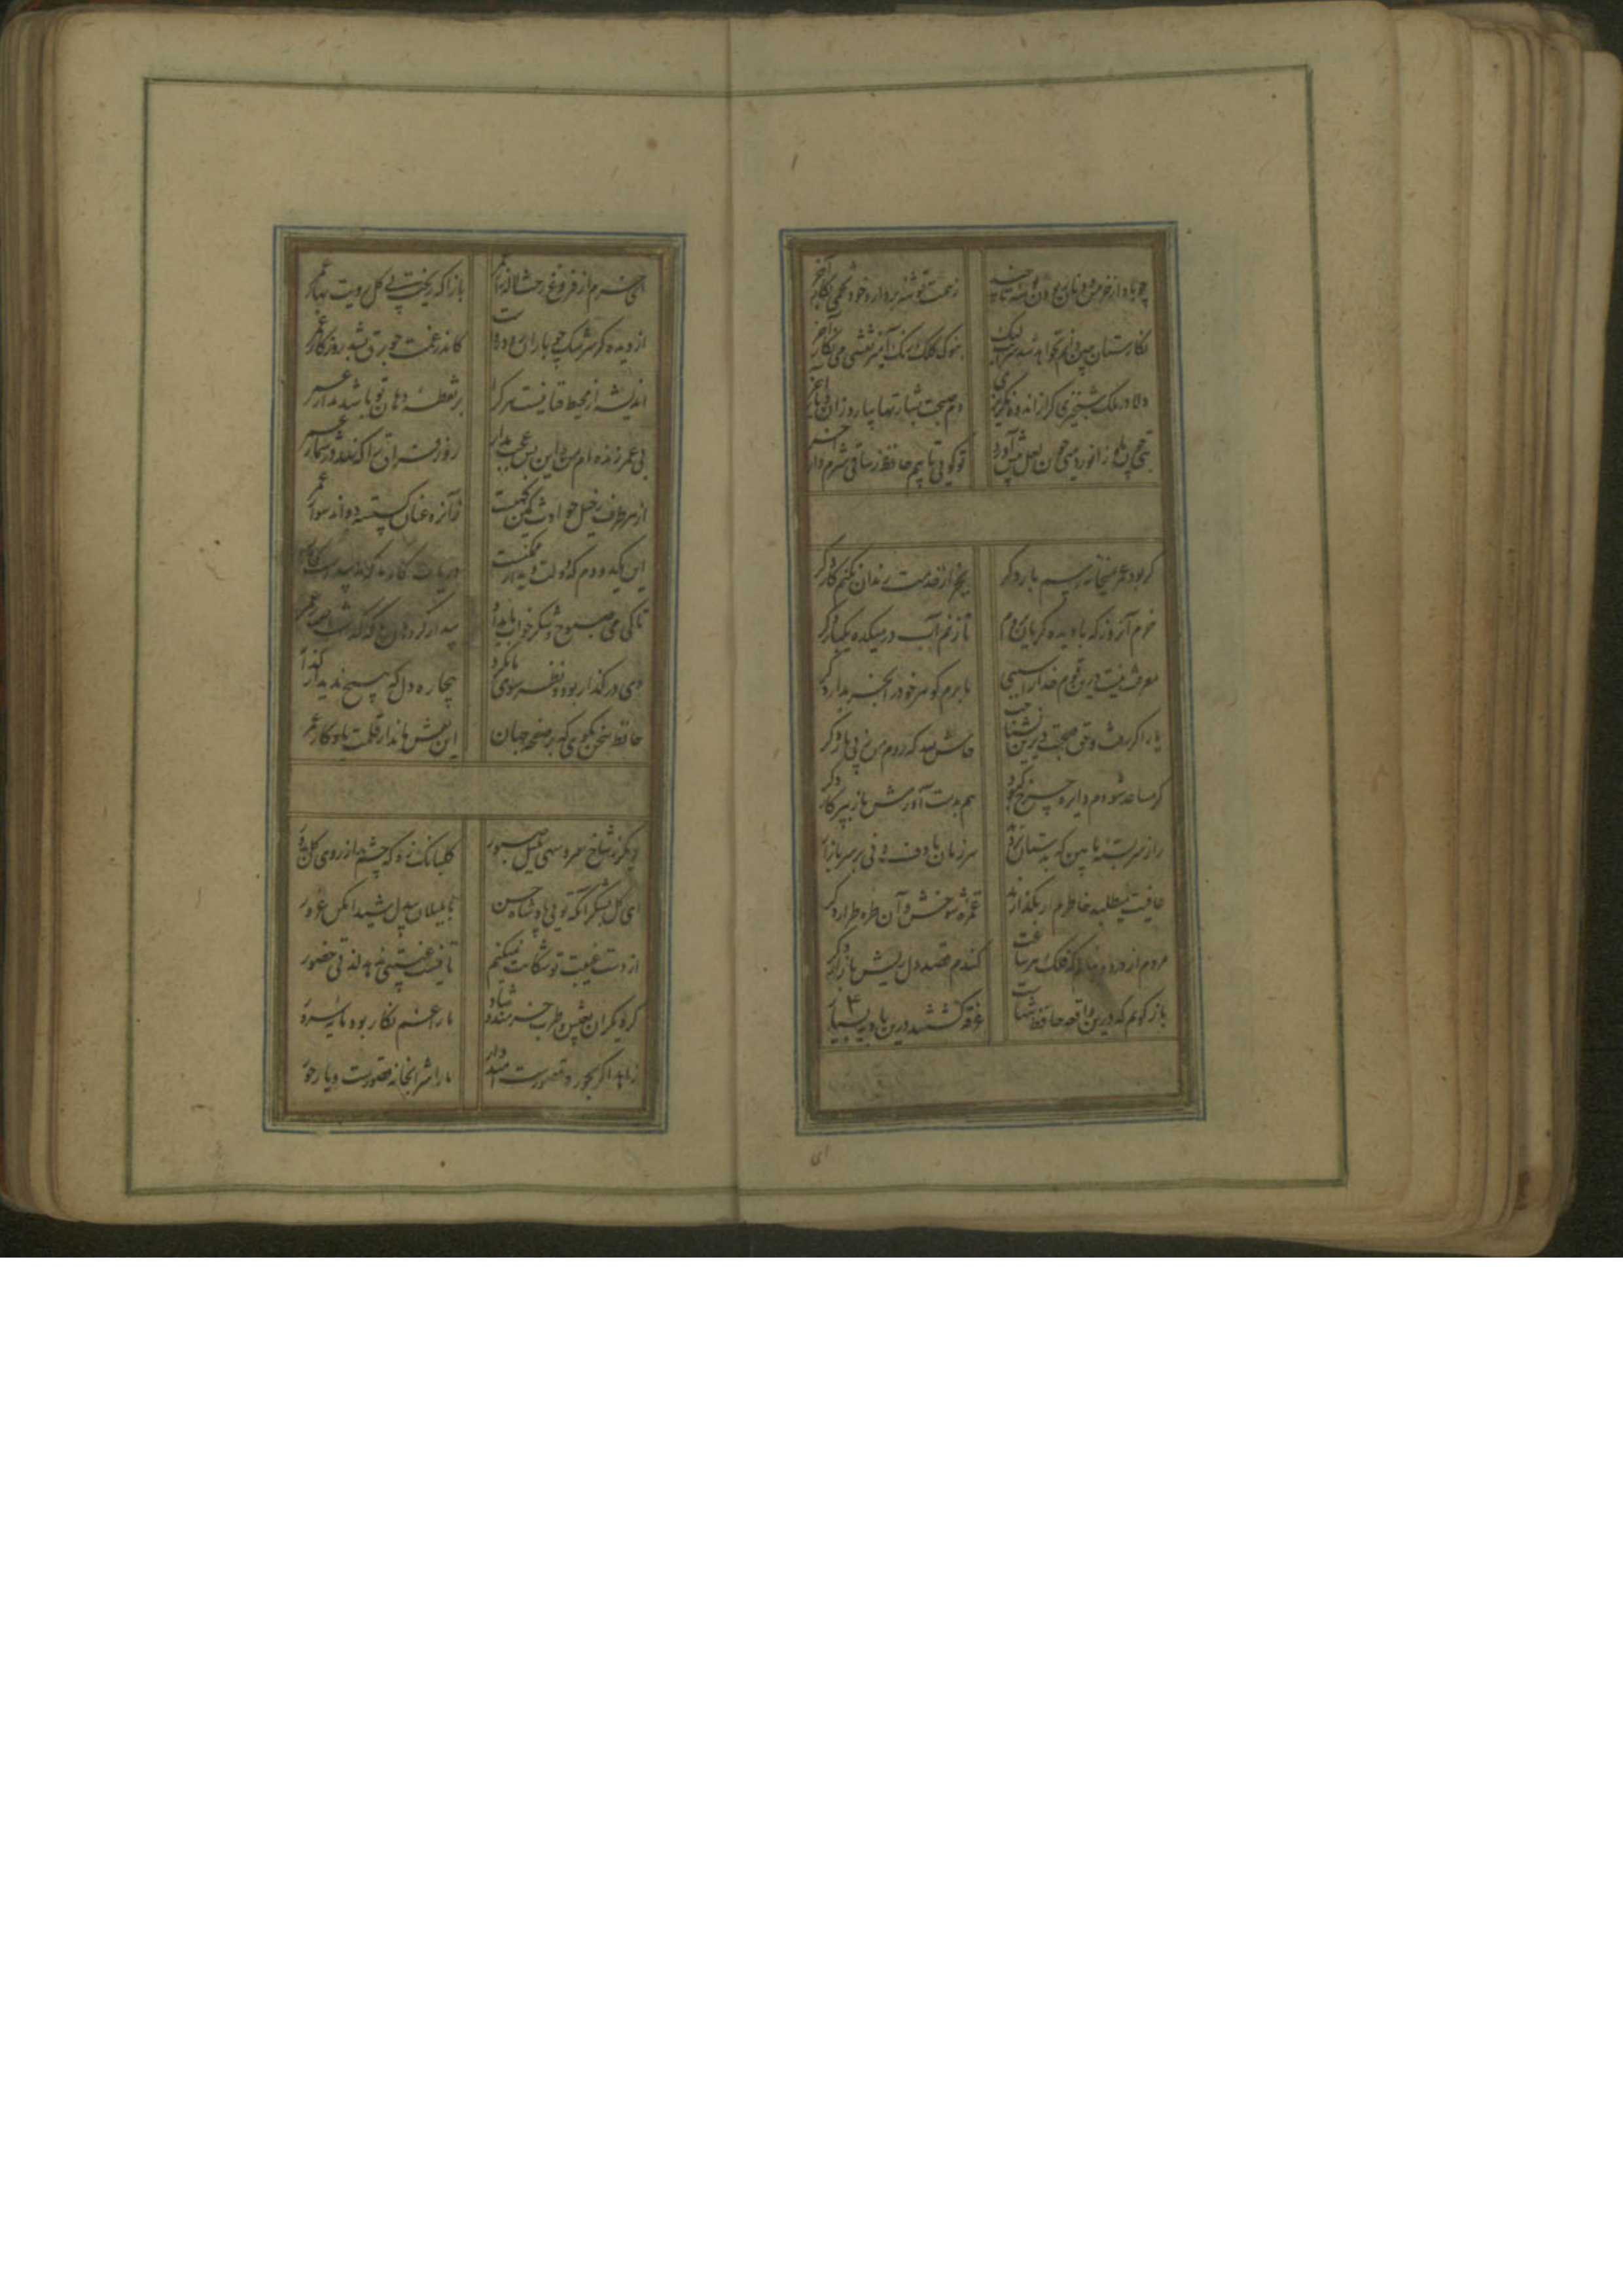 چو باد از خرمن دونان ربودن خوشه تا چند ز همت توشه بردار و خود تخمی بکار آخر
نکارستان چین دانم نخواهد شد سرایت لیک بنوک کلک رنک آمیز نقشی می نکار آخر
دلا در ملک شبخیزی کر از اندوه نکریزی دم صبحت بشارتها بیارد زان دیار آخر
بتی چون ماه زانو زد میی چون لعل پیش آورد تو کویی تایبم حافظ ز ساقی شرم دار آخر
کر بود عمر بمیخانه رسم بار دکر بجز از خدمت رندان نکنم کار دکر
خرم آنروز که با دیده کریان بروم تا زنم آب در میکده یکبار دکر
معرفت نیست درین قوم خدا را سببی تا برم کوهر خود را بخریدار دکر
یار اکر رفت و حق صحبت دیرین نشناخت حاش لله که روم من ز پی یار دکر
کر مساعد شودم دایره چرخ کبود هم بدست آورمش باز بپرکار دکر
راز سربسته ما بین که بدستان هر زمان با دف و نی بر سر بازار
عافیت میطلبد خاطرم ار بکذارند غمزه شوخش و آن طره طرار دکر
هردم از درد بنالم که فلک هر ساعت کندم قصد دل ریش بازار دکر
باز کویم که درین واقعه حافظ تنهاست غرقه کشتند درین بادیه بسیار
ای
ای خرم از فروغ رخت لاله زار عمر بازآ که ریخت بی کل رویت بهار عمر
از دیده کر سرشک چو باران رود رواست کاندر غمت چو برق بشد روزکار عمر
اندیشه از محیط فنا نیست هر کرا بر نقطه دهان تو باشد مدار عمر
بی عمر زنده ام من و این بس عجب مدار روز فراق را که نهد در شمار عمر
از هر طرف ز خیل حوادث کمین کهیست زآنرو عنان کسسته دواند سوار عمر
این یکدو دم که دولت دیدار ممکنست دریاب کار ما که نه پیداست کار
تا کی می صبوح و شکر خواب بامداد بیدار کرد هان که کذشت اختیار عمر
دی در کذار بود و نظر سوی ما نکرد بیچاره دل که هیچ ندید از کذار
حافظ سخن بکوی که بر صفحه جهان این نقش ماند از قلمت یادکار عمر
دیکر ز شاخ سرو سهی بلبل صبور کلبانک زد که چشم بد از روی کل دور
ای کل بشکر آنکه تویی پادشاه حسن با بلبلان بیدل شیدا مکن غرور
از دست غیبت تو شکایت نمیکنم تا نیست غیبتی ندهد لذتی حضور
کر دیکران بعیش و طرب خرمند و شاد ما را غم نکار بود مایه سرور
زاهد اکر بحور و قصورست امیدوار ما را شرابخانه قصورست و یار حور